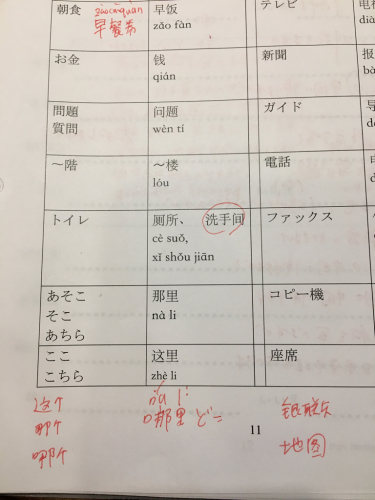 朝食
早餐券
早饭
zǎo fàn
テレビ
お金
钱
qián
新聞
問題
質問
问题
wèn tí
ガイド
～階
～楼
lóu
電話
トイレ
厕所、 洗手间
cè suǒ,
xǐ shǒu jiān
ファックス
あそこ
そこ
あちら
那里
nà li
コピー機
ここ
こちら
这里
zhè li
座席
这个
那个
哪里 どこ
地图
11